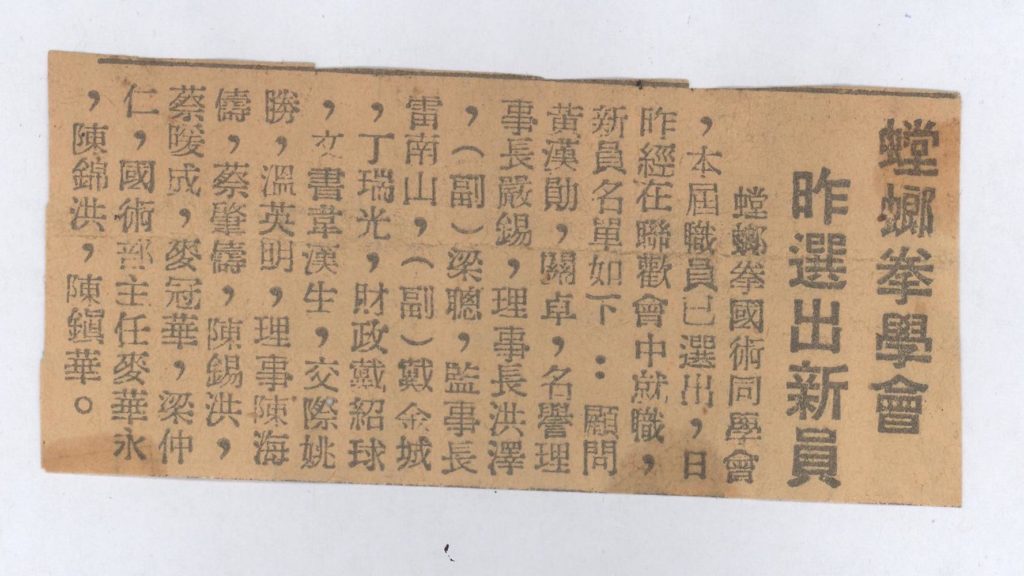 螳螂拳學會
昨選出新員
螳螂拳國術同學會
，本屆職員已選出，日
昨經在聯歡會中就職，
新員名單如下：顧問
黃漢勛，關卓，名譽理
事長嚴錫，理事長洪澤
，（副）梁聰，監事長
雷南山，（副）戴金城
，丁瑞光，財政戴紹球
，文書韋漢生，交際姚
勝，溫英明，理事陳海
儔，蔡肇儔，陳錫洪，
蔡暖成，麥冠華，梁仲
仁，國術部主任麥華永
，陳錦洪，陳鎭華。